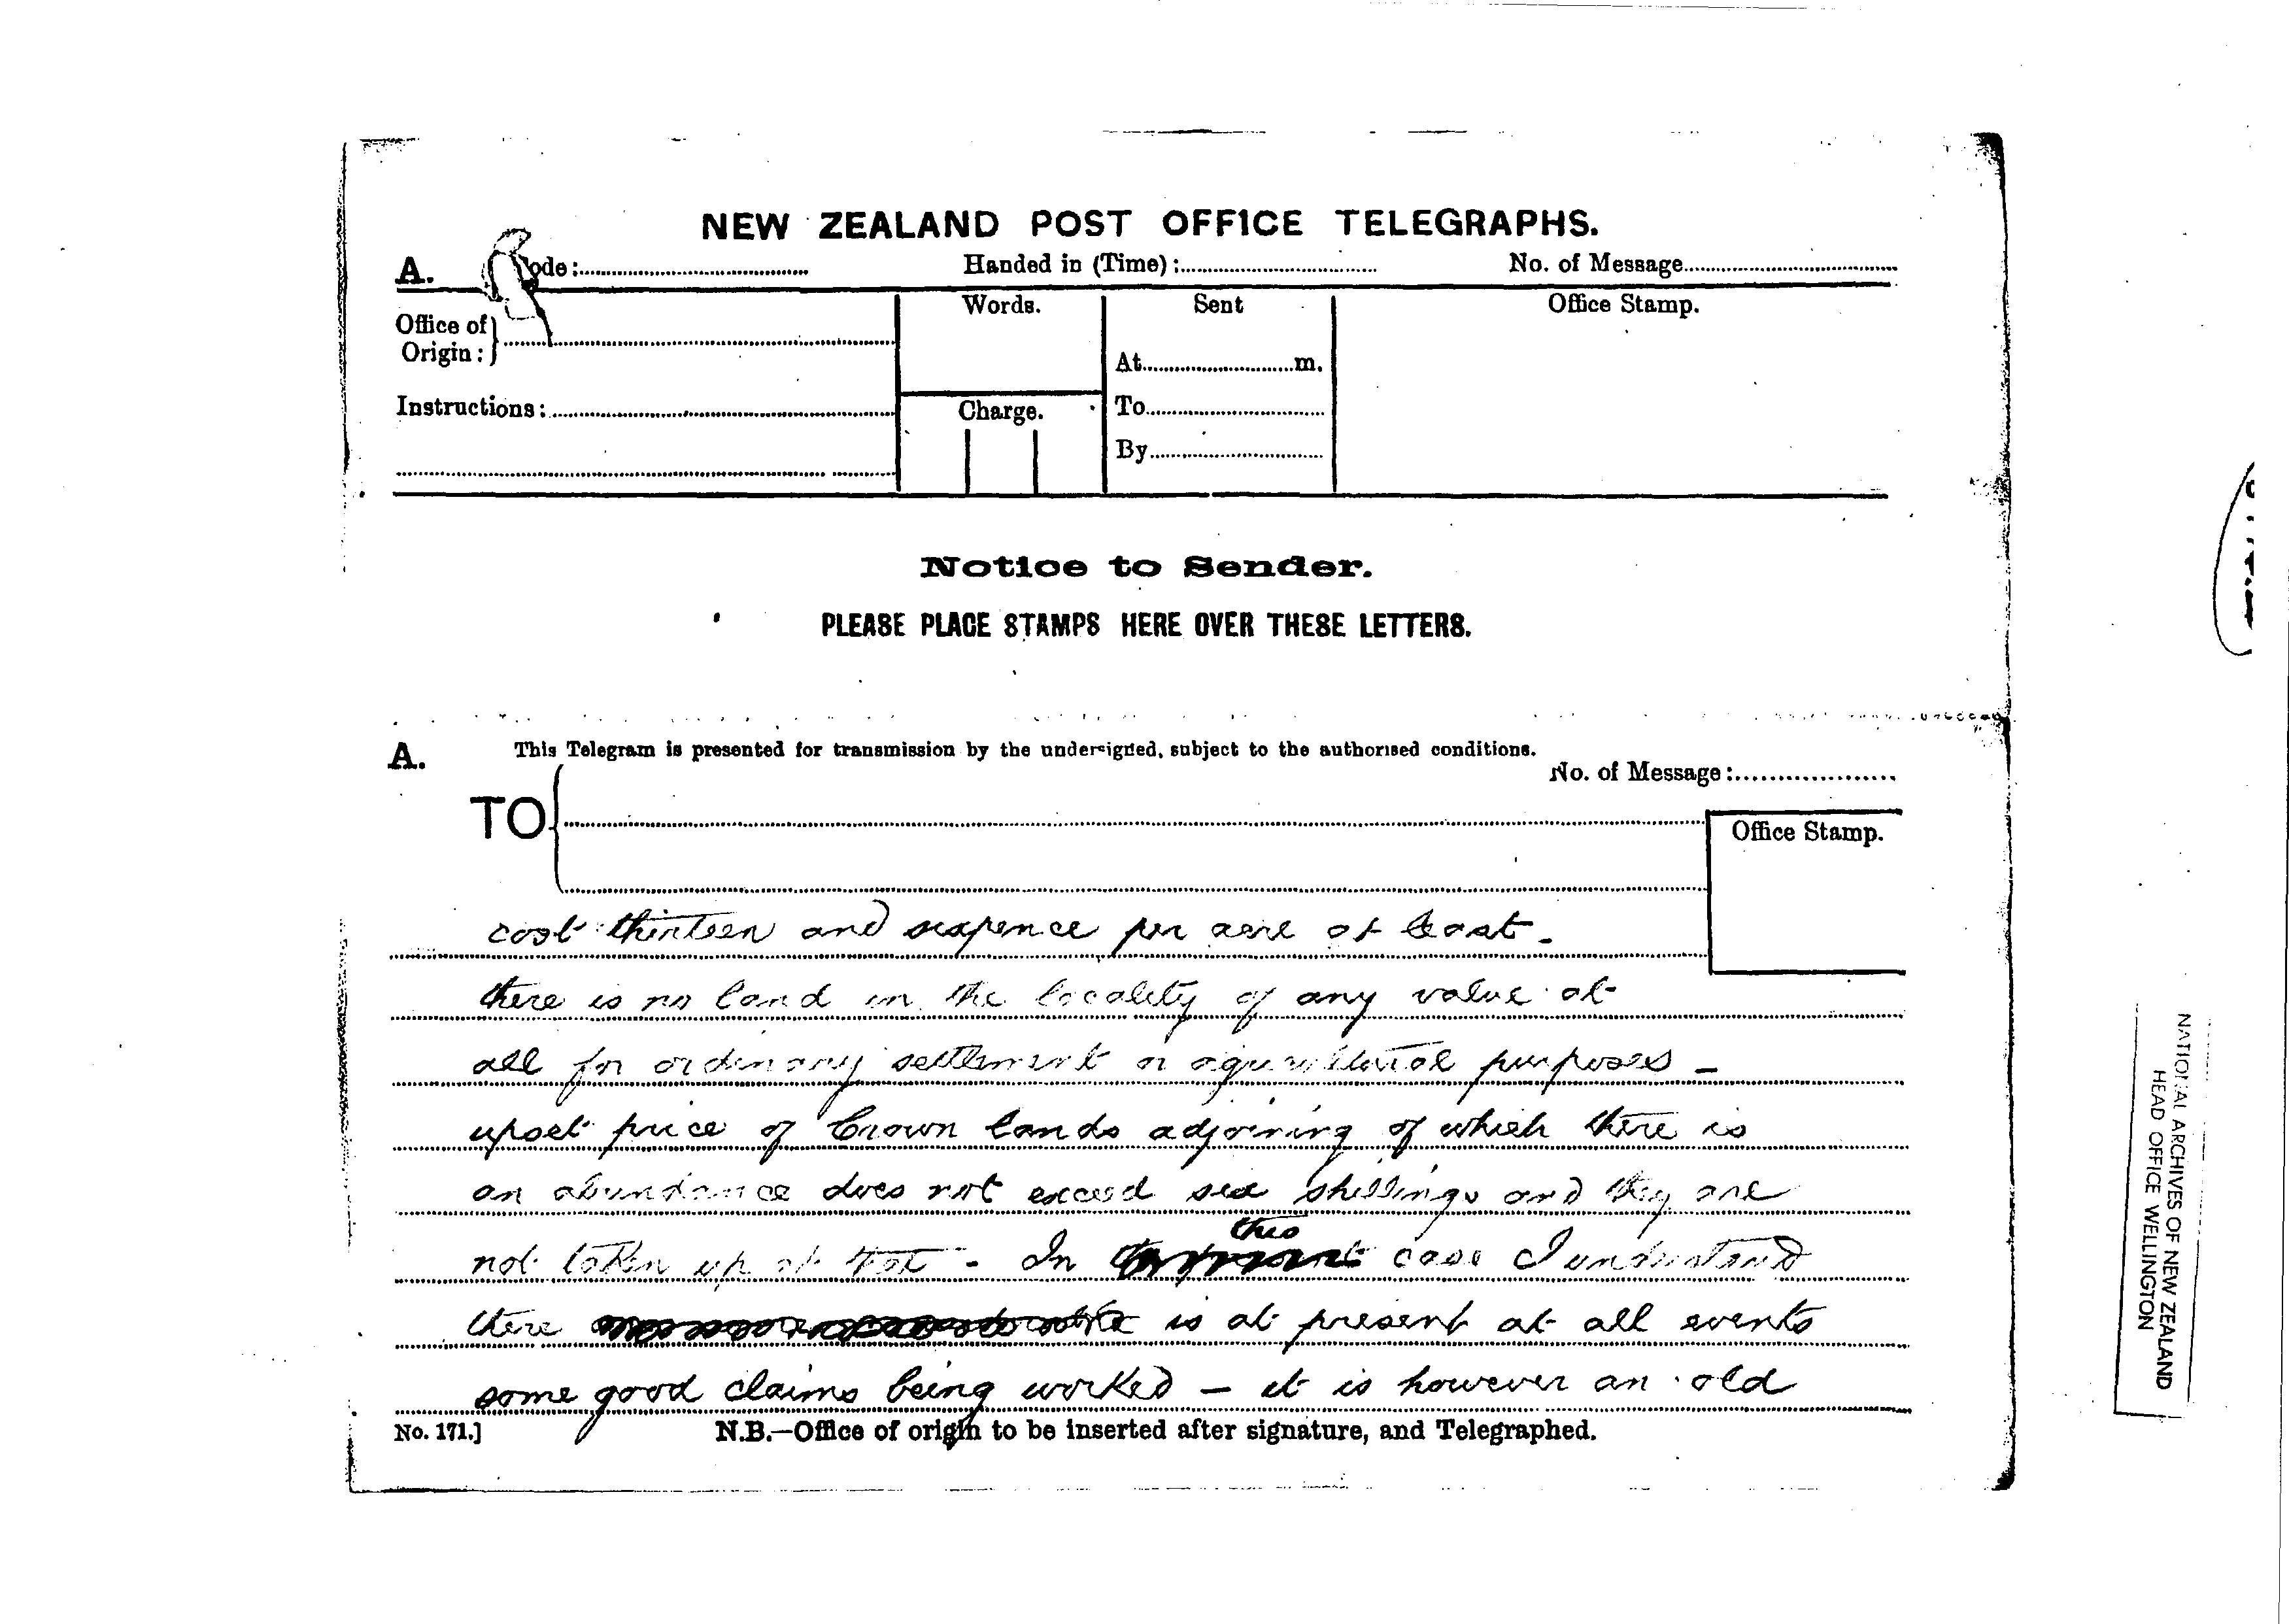 NEW ZEALAND POST OFFICE TELEGRAPHS.
A. Code: Handed in (Time): No. of Message
Office of Origin:
Words.
Sent
Office Stamp.
At m.
Instructions:
Charge.
To
By
Notice to Sender.
PLEASE PLACE STAMPS HERE OVER THESE LETTERS.
A. This Telegram is presented for transmission by the undersigned, subject to the authorised conditions.
No. of Message:
TO
Office Stamp.
cost thirteen and sixpence per acre at least -
there is no land in the locality of any value at
all for ordinary settlement or agricultural purposes -
upset price of Crown lands adjoining of which there is
an abundance does not exceed six shillings and they are
not taken up at that - In this case I understand
there is at present at all events
some good claims being worked - it is however an old
No. 171.] N.B.—Office of origin to be inserted after signature, and Telegraphed.
NATIONAL ARCHIVES OF NEW ZEALAND
HEAD OFFICE WELLINGTON